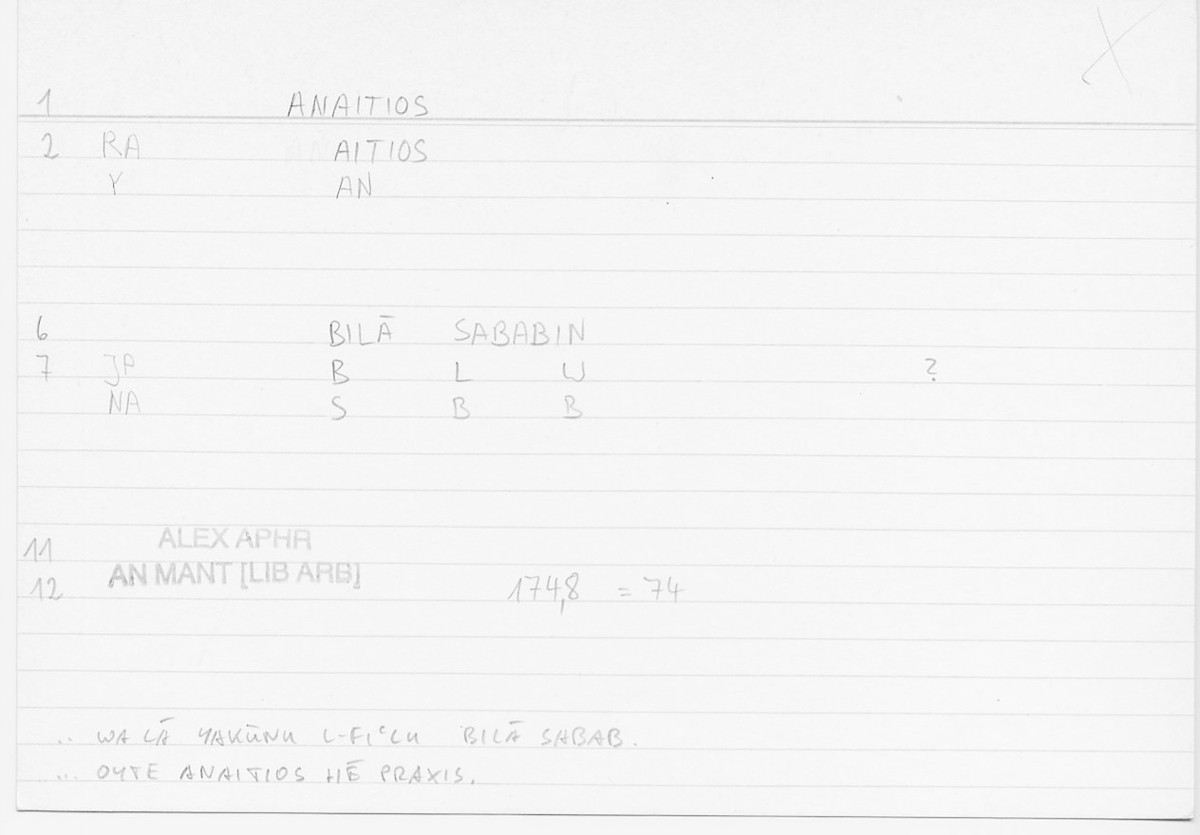 X
1 ANAITIOS
2 RA AITIOS
Y AN
6 BILĀ SABABIN
7 JP B L W ?
NA S B B
11 ALEX APHR
12 AN MANT [LIB ARB] 174,8 = 74
.. WA LĀ YAKŪNU L-FIʿLU BILĀ SABAB.
... OYTE ANAITIOS HĒ PRAXIS.